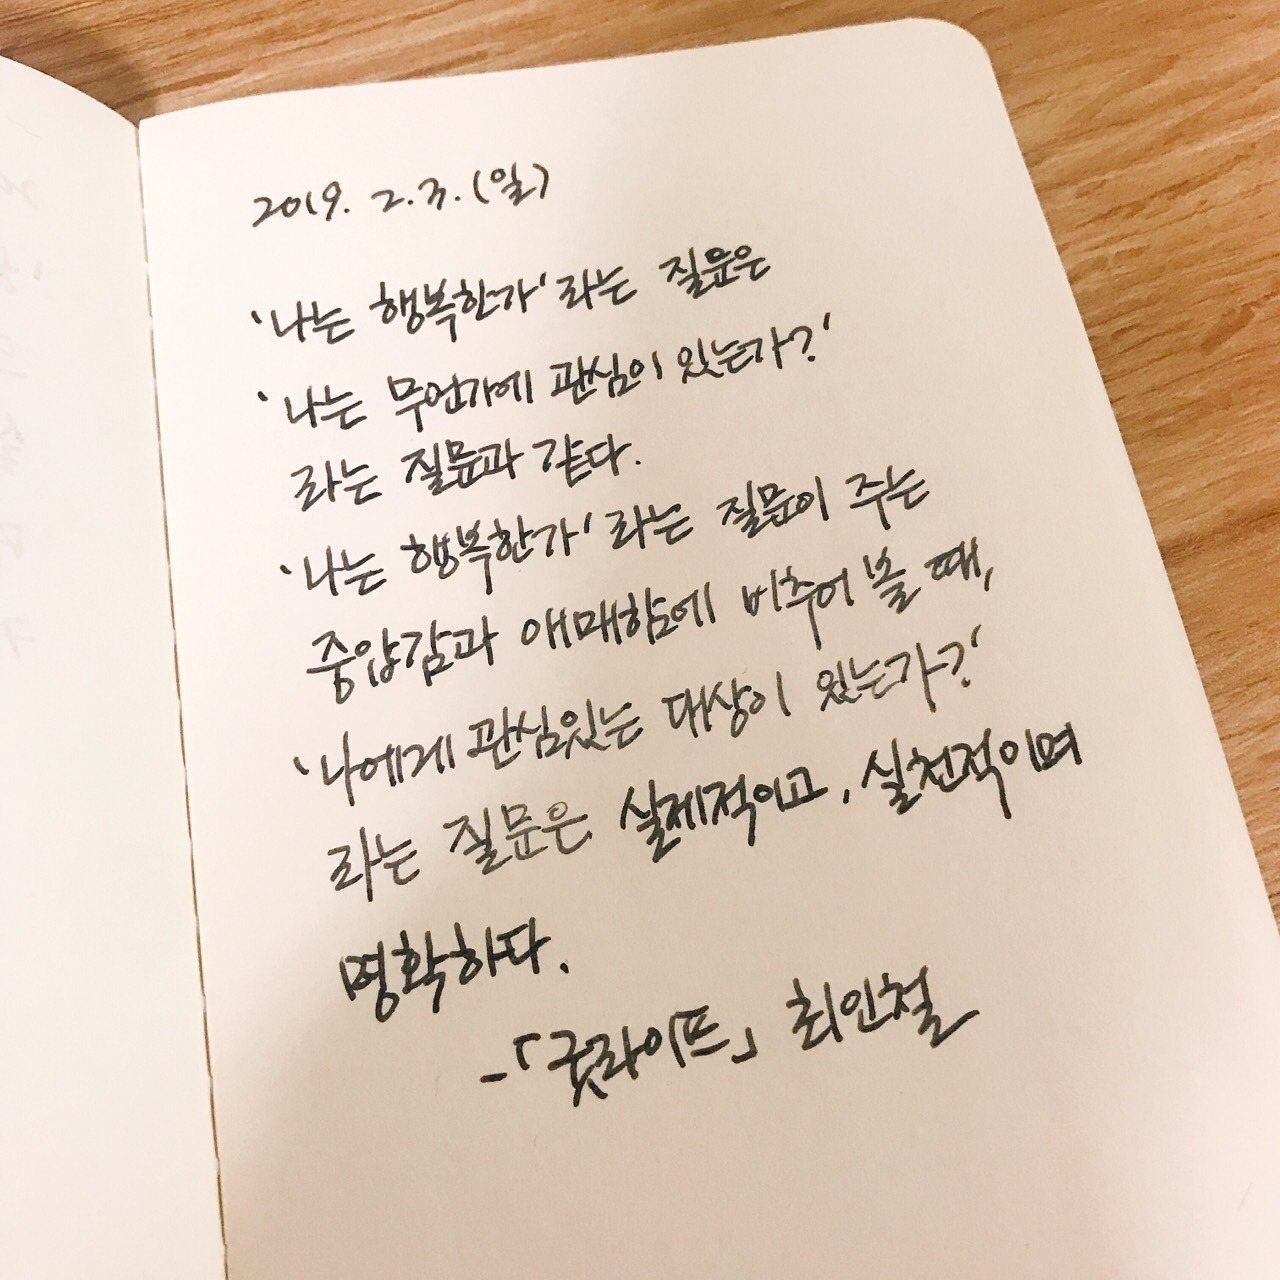 2019. 2.3.(일)
'나는 행복한가'라는 질문은
'나는 무언가에 관심이 있는가?'
라는 질문과 같다.
'나는 행복한가'라는 질문이 주는
중압감과 애매함에 비추어 볼 때,
'나에게 관심있는 대상이 있는가?'
라는 질문은 실제적이고, 실천적이며
명확하다.
-「굿라이프」 최인철